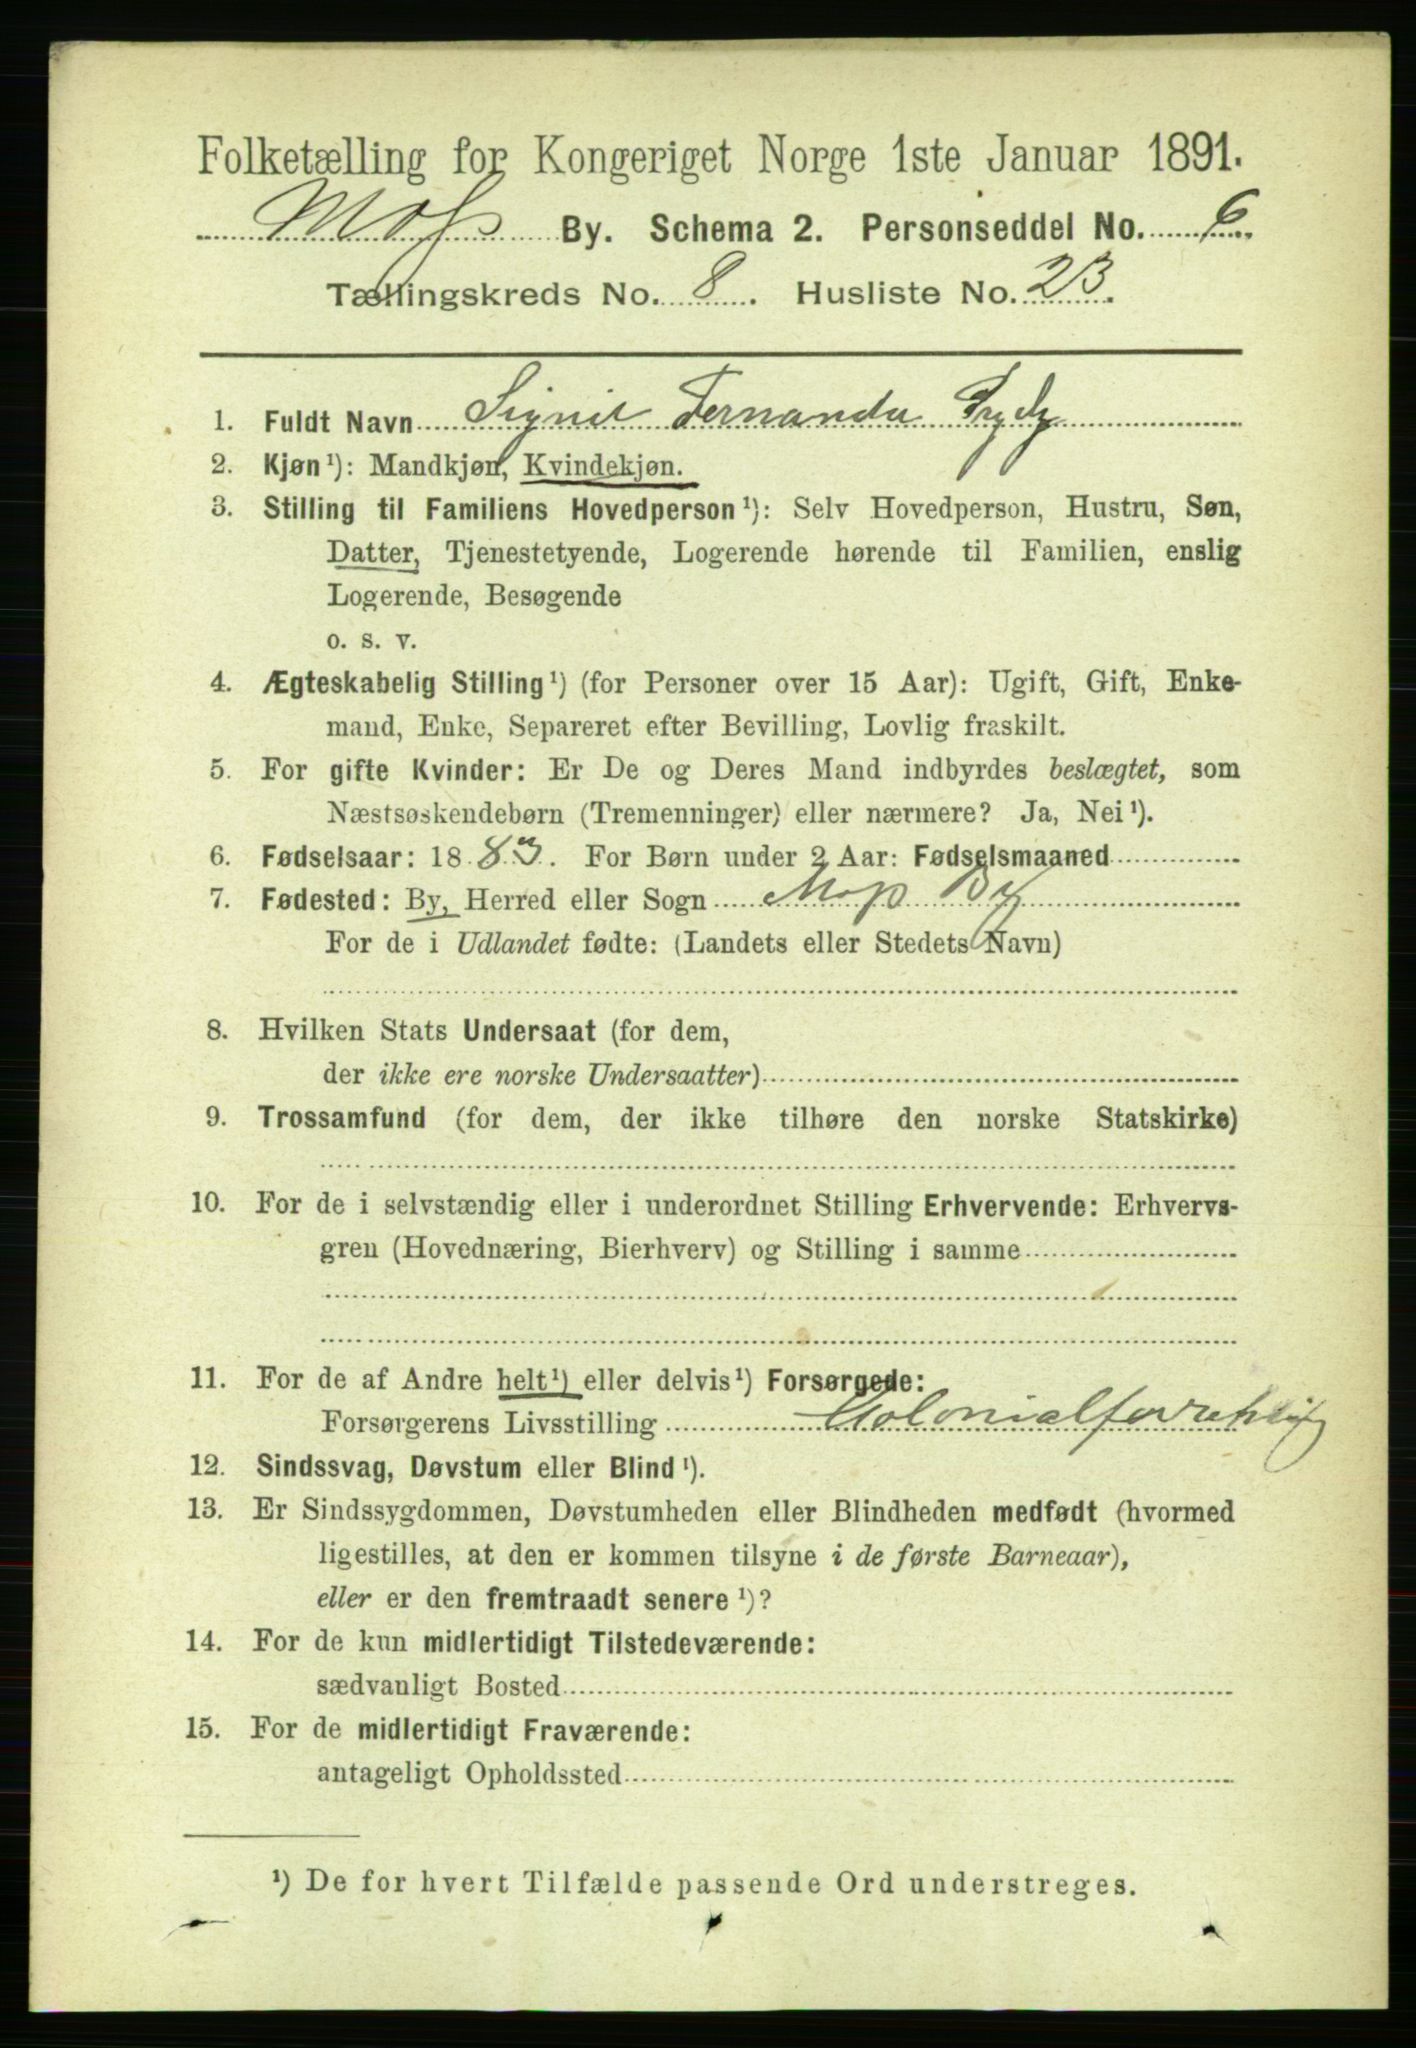 Folketælling for Kongeriget Norge 1ste Januar 1891.
Moss By. Schema 2. Personseddel No. 6
Tællingskreds No. 8. Husliste No. 23.
1. Fuldt Navn Signil Fernanda
2. Kjøn¹): Mandkjøn, Kvindekjøn.
3. Stilling til Familiens Hovedperson¹): Selv Hovedperson, Hustru, Søn,
Datter, Tjenestetyende, Logerende hørende til Familien, enslig
Logerende, Besøgende
o. s. v.
4. Ægteskabelig Stilling¹) (for Personer over 15 Aar): Ugift, Gift, Enke-
mand, Enke, Separeret efter Bevilling, Lovlig fraskilt.
5. For gifte Kvinder: Er De og Deres Mand indbyrdes beslægtet, som
Næstsøskendebørn (Tremenninger) eller nærmere? Ja, Nei¹).
6. Fødselsaar: 1883. For Børn under 2 Aar: Fødselsmaaned
7. Fødested: By, Herred eller Sogn Moss By
For de i Udlandet fødte: (Landets eller Stedets Navn)
8. Hvilken Stats Undersaat (for dem,
der ikke ere norske Undersaatter)
9. Trossamfund (for dem, der ikke tilhøre den norske Statskirke)
10. For de i selvstændig eller i underordnet Stilling Erhvervende: Erhvervs-
gren (Hovednæring, Bierhverv) og Stilling i samme
11. For de af Andre helt¹) eller delvis¹) Forsørgede:
Forsørgerens Livsstilling
12. Sindssvag, Døvstum eller Blind¹).
13. Er Sindssygdommen, Døvstumheden eller Blindheden medfødt (hvormed
ligestilles, at den er kommen tilsyne i de første Barneaar),
eller er den fremtraadt senere¹)?
14. For de kun midlertidigt Tilstedeværende:
sædvanligt Bosted
15. For de midlertidigt Fraværende:
antageligt Opholdssted
¹) De for hvert Tilfælde passende Ord understreges.